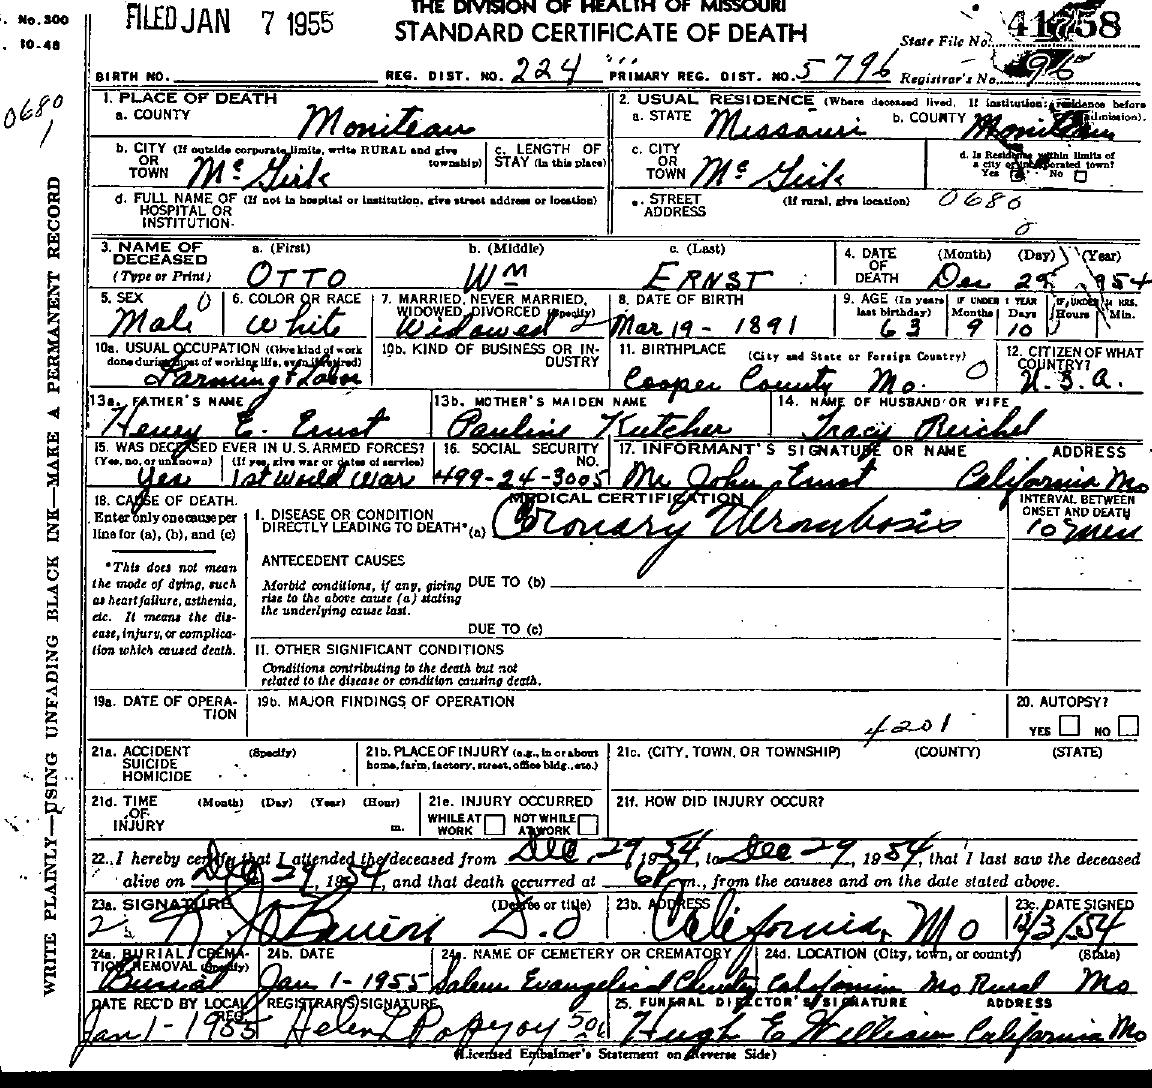 THE DIVISION OF HEALTH OF MISSOURI
STANDARD CERTIFICATE OF DEATH
FILED JAN 7 1955
. No. 300
. 10-48
State File No. 41758
BIRTH NO. REG. DIST. NO. 224 PRIMARY REG. DIST. NO. 5796 Registrar's No. 96
0680
1
1. PLACE OF DEATH
a. COUNTY Moniteau
2. USUAL RESIDENCE (Where deceased lived. If institution: residence before admission).
a. STATE Missouri b. COUNTY Moniteau
b. CITY (If outside corporate limits, write RURAL and give township)
OR TOWN McGirk
c. LENGTH OF STAY (in this place)
c. CITY OR TOWN McGirk
d. Is Residence within limits of a city or incorporated town?
Yes No
d. FULL NAME OF (If not in hospital or institution, give street address or location)
HOSPITAL OR INSTITUTION
e. STREET ADDRESS (If rural, give location)
0680
0
3. NAME OF DECEASED (Type or Print)
a. (First) OTTO b. (Middle) Wm c. (Last) ERNST
4. DATE OF DEATH (Month) (Day) (Year) Dec 29, 1954
5. SEX Male 0
6. COLOR OR RACE White
7. MARRIED, NEVER MARRIED, WIDOWED, DIVORCED (Specify) Widowed 2
8. DATE OF BIRTH Mar 19 - 1891
9. AGE (In years last birthday) 63 IF UNDER 1 YEAR Months 9 Days 10 IF UNDER 24 HRS. Hours Min.
10a. USUAL OCCUPATION (Give kind of work done during most of working life, even if retired) Farming & Labor
10b. KIND OF BUSINESS OR INDUSTRY
11. BIRTHPLACE (City and State or Foreign Country) Cooper County Mo. 0
12. CITIZEN OF WHAT COUNTRY? U.S.A.
13a. FATHER'S NAME Henry E. Ernst
13b. MOTHER'S MAIDEN NAME Pauline Kutcher
14. NAME OF HUSBAND OR WIFE Tracy Reichel
15. WAS DECEASED EVER IN U.S. ARMED FORCES?
(Yes, no, or unknown) (If yes, give war or dates of service)
Yes 1st World War
16. SOCIAL SECURITY NO. 499-24-3005
17. INFORMANT'S SIGNATURE OR NAME ADDRESS
Mr John Ernst California Mo
18. CAUSE OF DEATH.
Enter only one cause per line for (a), (b), and (c)
*This does not mean the mode of dying, such as heart failure, asthenia, etc. It means the disease, injury, or complication which caused death.
MEDICAL CERTIFICATION
INTERVAL BETWEEN ONSET AND DEATH
I. DISEASE OR CONDITION DIRECTLY LEADING TO DEATH* (a) Coronary Thrombosis 10 min
ANTECEDENT CAUSES
Morbid conditions, if any, giving rise to the above cause (a) stating the underlying cause last.
DUE TO (b)
DUE TO (c)
II. OTHER SIGNIFICANT CONDITIONS
Conditions contributing to the death but not related to the disease or condition causing death.
19a. DATE OF OPERATION
19b. MAJOR FINDINGS OF OPERATION
4201
20. AUTOPSY?
YES NO
21a. ACCIDENT SUICIDE HOMICIDE (Specify)
21b. PLACE OF INJURY (e.g., in or about home, farm, factory, street, office bldg., etc.)
21c. (CITY, TOWN, OR TOWNSHIP) (COUNTY) (STATE)
21d. TIME OF INJURY (Month) (Day) (Year) (Hour) m.
21e. INJURY OCCURRED
WHILE AT WORK NOT WHILE AT WORK
21f. HOW DID INJURY OCCUR?
22. I hereby certify that I attended the deceased from Dec. 29, 1954, to Dec 29, 1954, that I last saw the deceased
alive on Dec 29, 1954, and that death occurred at 6P m., from the causes and on the date stated above.
23a. SIGNATURE (Degree or title) D.O
23b. ADDRESS California, Mo
23c. DATE SIGNED
24a. BURIAL, CREMATION, REMOVAL (Specify) Burial
24b. DATE Jan 1 - 1955
24c. NAME OF CEMETERY OR CREMATORY Salem Evangelical
24d. LOCATION (City, town, or county) (State) California Mo Rural Mo
DATE REC'D BY LOCAL REG. Jan 1 - 1955
REGISTRAR'S SIGNATURE Helen L Popejoy
25. FUNERAL DIRECTOR'S SIGNATURE ADDRESS
Hugh E. William California Mo
(Licensed Embalmer's Statement on Reverse Side)
WRITE PLAINLY—USING UNFADING BLACK INK—MAKE A PERMANENT RECORD